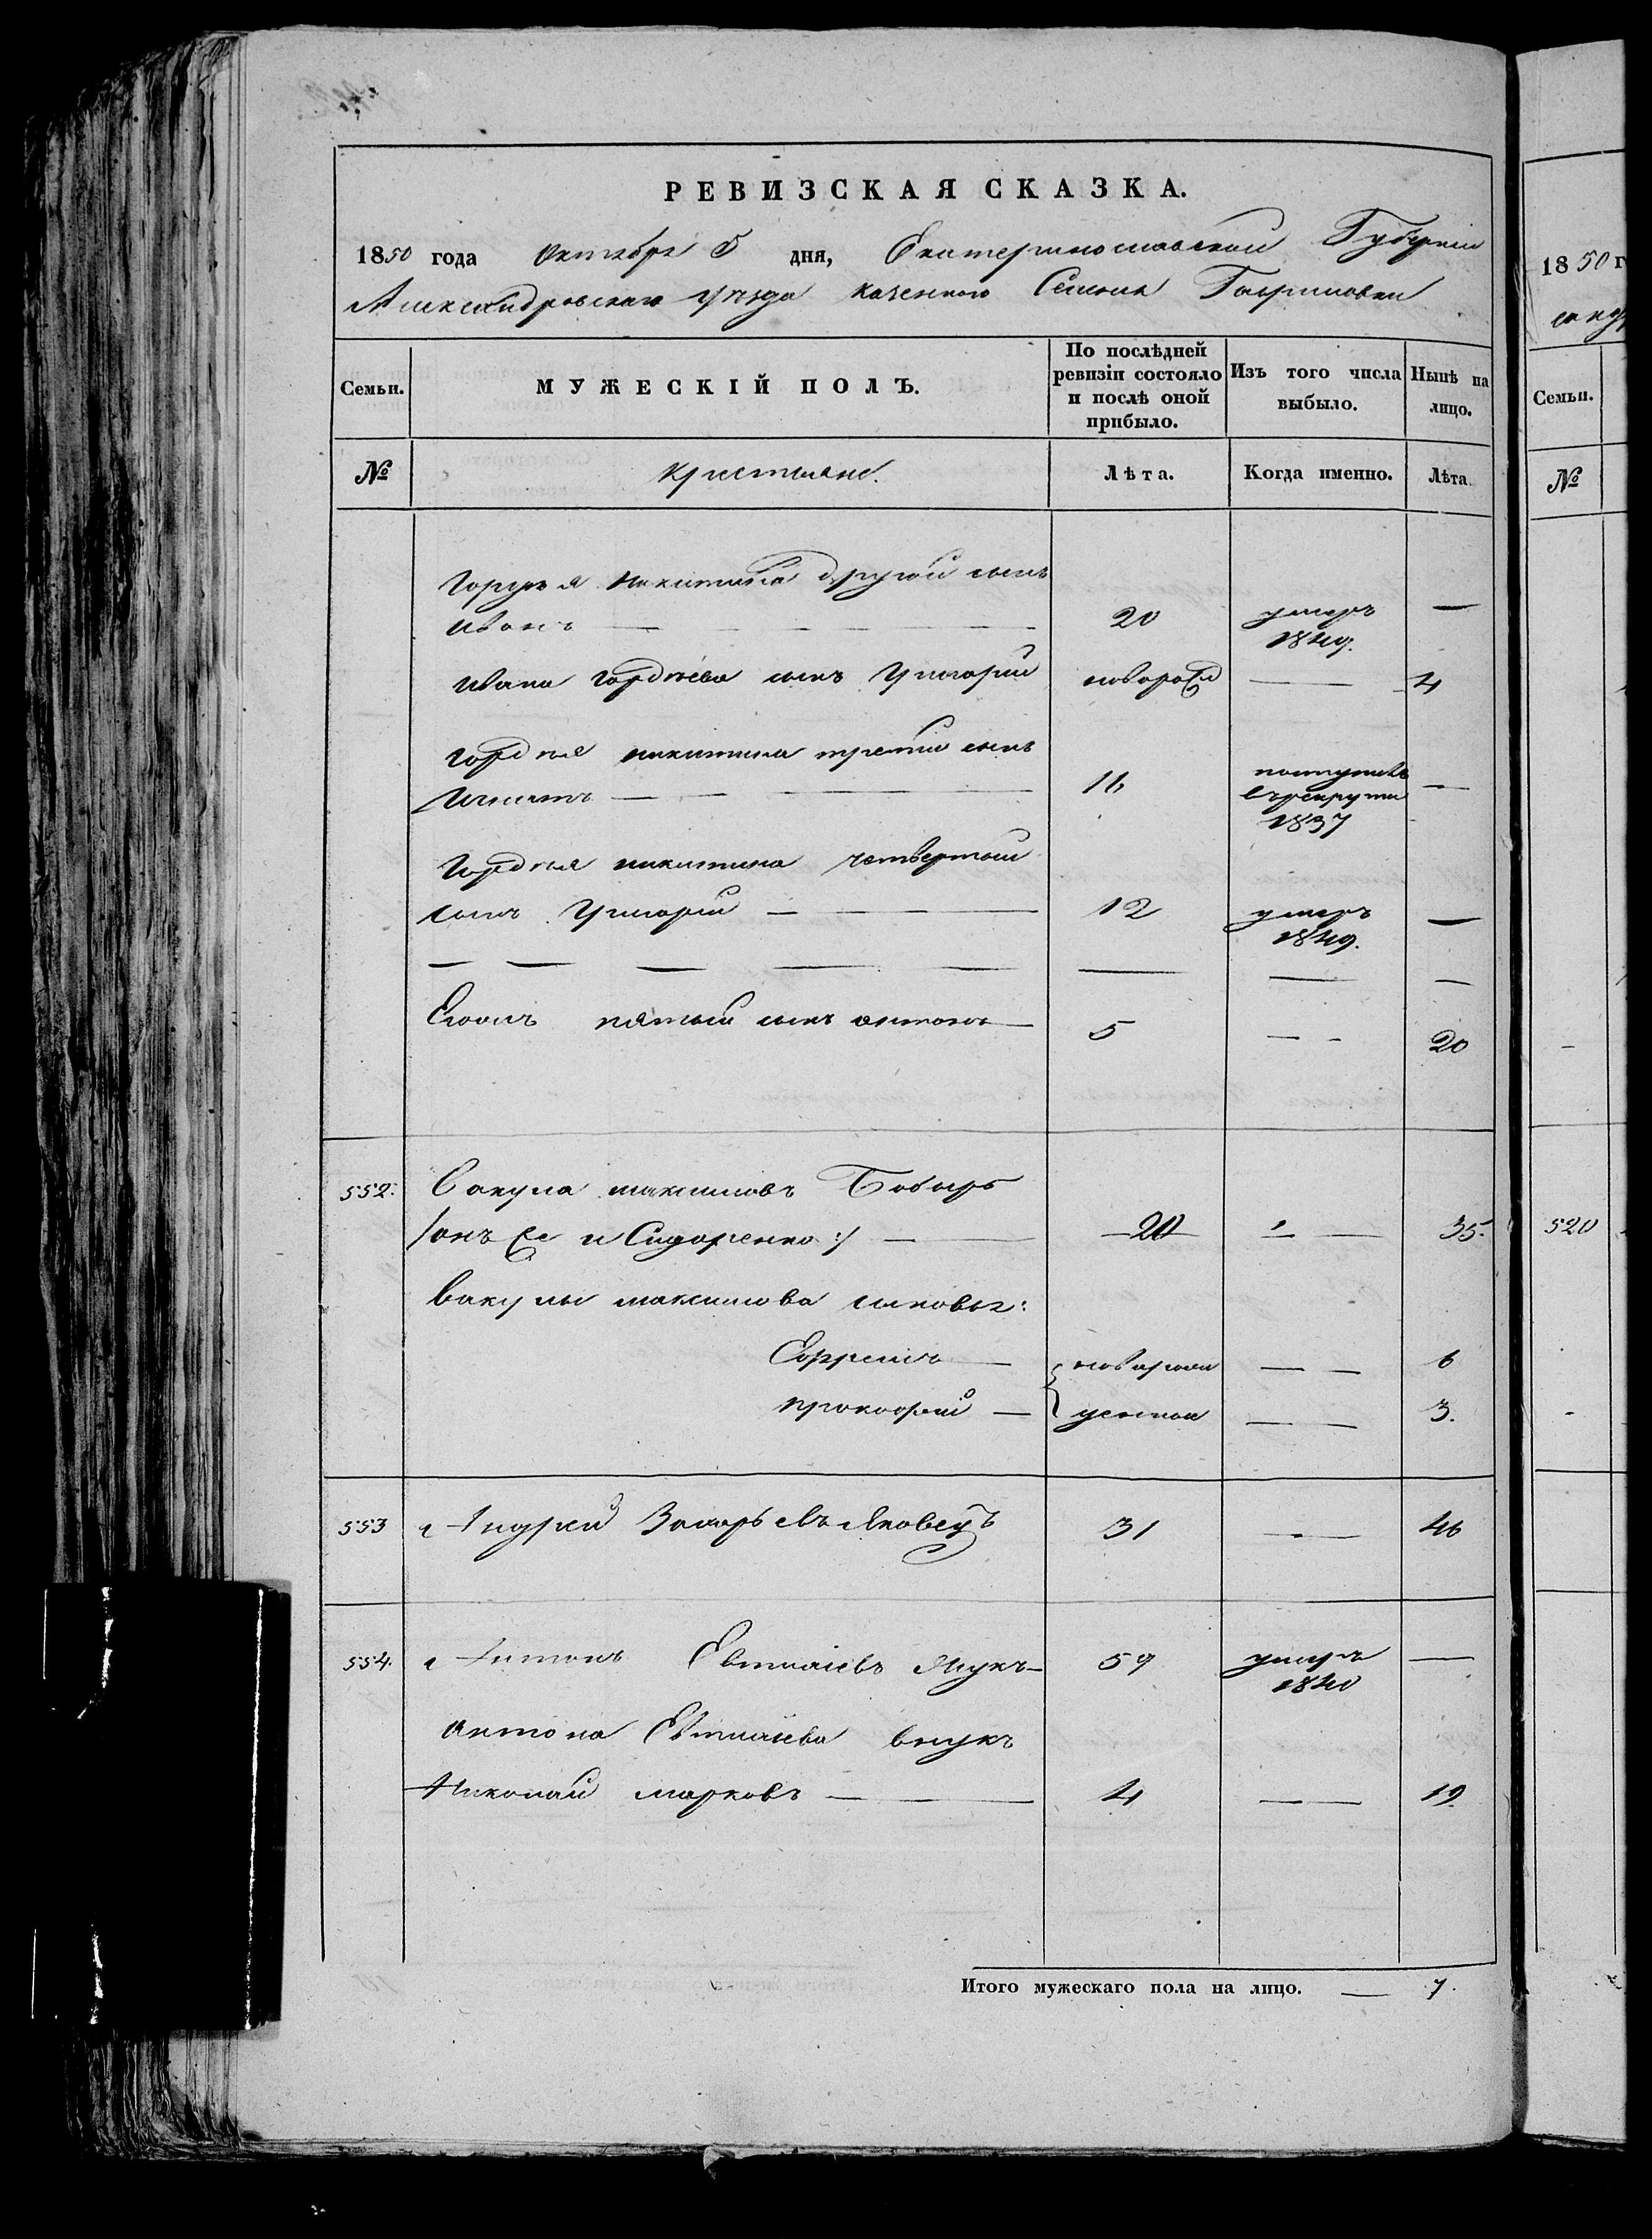 РЕВИЗСКАЯ СКАЗКА.
1850 года Октября 5 дня, Екатеринославской Губернии
Александровскаго уезда казенного Селенія Гавриловки
Семьи. МУЖЕСКІЙ ПОЛЪ. По послѣдней ревизіи состояло и послѣ оной прибыло. Изъ того числа выбыло. Нынѣ на лицо.
№ Крестьяне. Лѣта. Когда именно. Лѣта.
Гордѣя Никитина другой сынъ
Иванъ — 20 умеръ 1849. —
Ивана Гордѣева сынъ Григорій новорожд — 4
Гордѣя Никитина третій сынъ
Игнатъ — 16 поступилъ въ рекруты 1837 —
Гордѣя Никитина четвертый
сынъ Григорій — 12 умеръ 1849. —
— — — — — — — —
Егоже пятый сынъ Антонъ — 5 — 20
552. Вакула Максимовъ Бобырь
/онъ же и Сидоренко:/ — 20 — 35.
Вакулы Максимова сыновья:
Ефремъ — новорож — 6
Прокофій — денные — 3.
553 Андрей Захарьевъ Яковецъ 31 — 46
554. Антонъ Евтихіевъ — 59 умеръ 1840 —
Антона Евтихіева внукъ
Николай Марковъ — 4 — 19.
Итого мужескаго пола на лицо. — 7.
1850 г
Семьи.
№
520